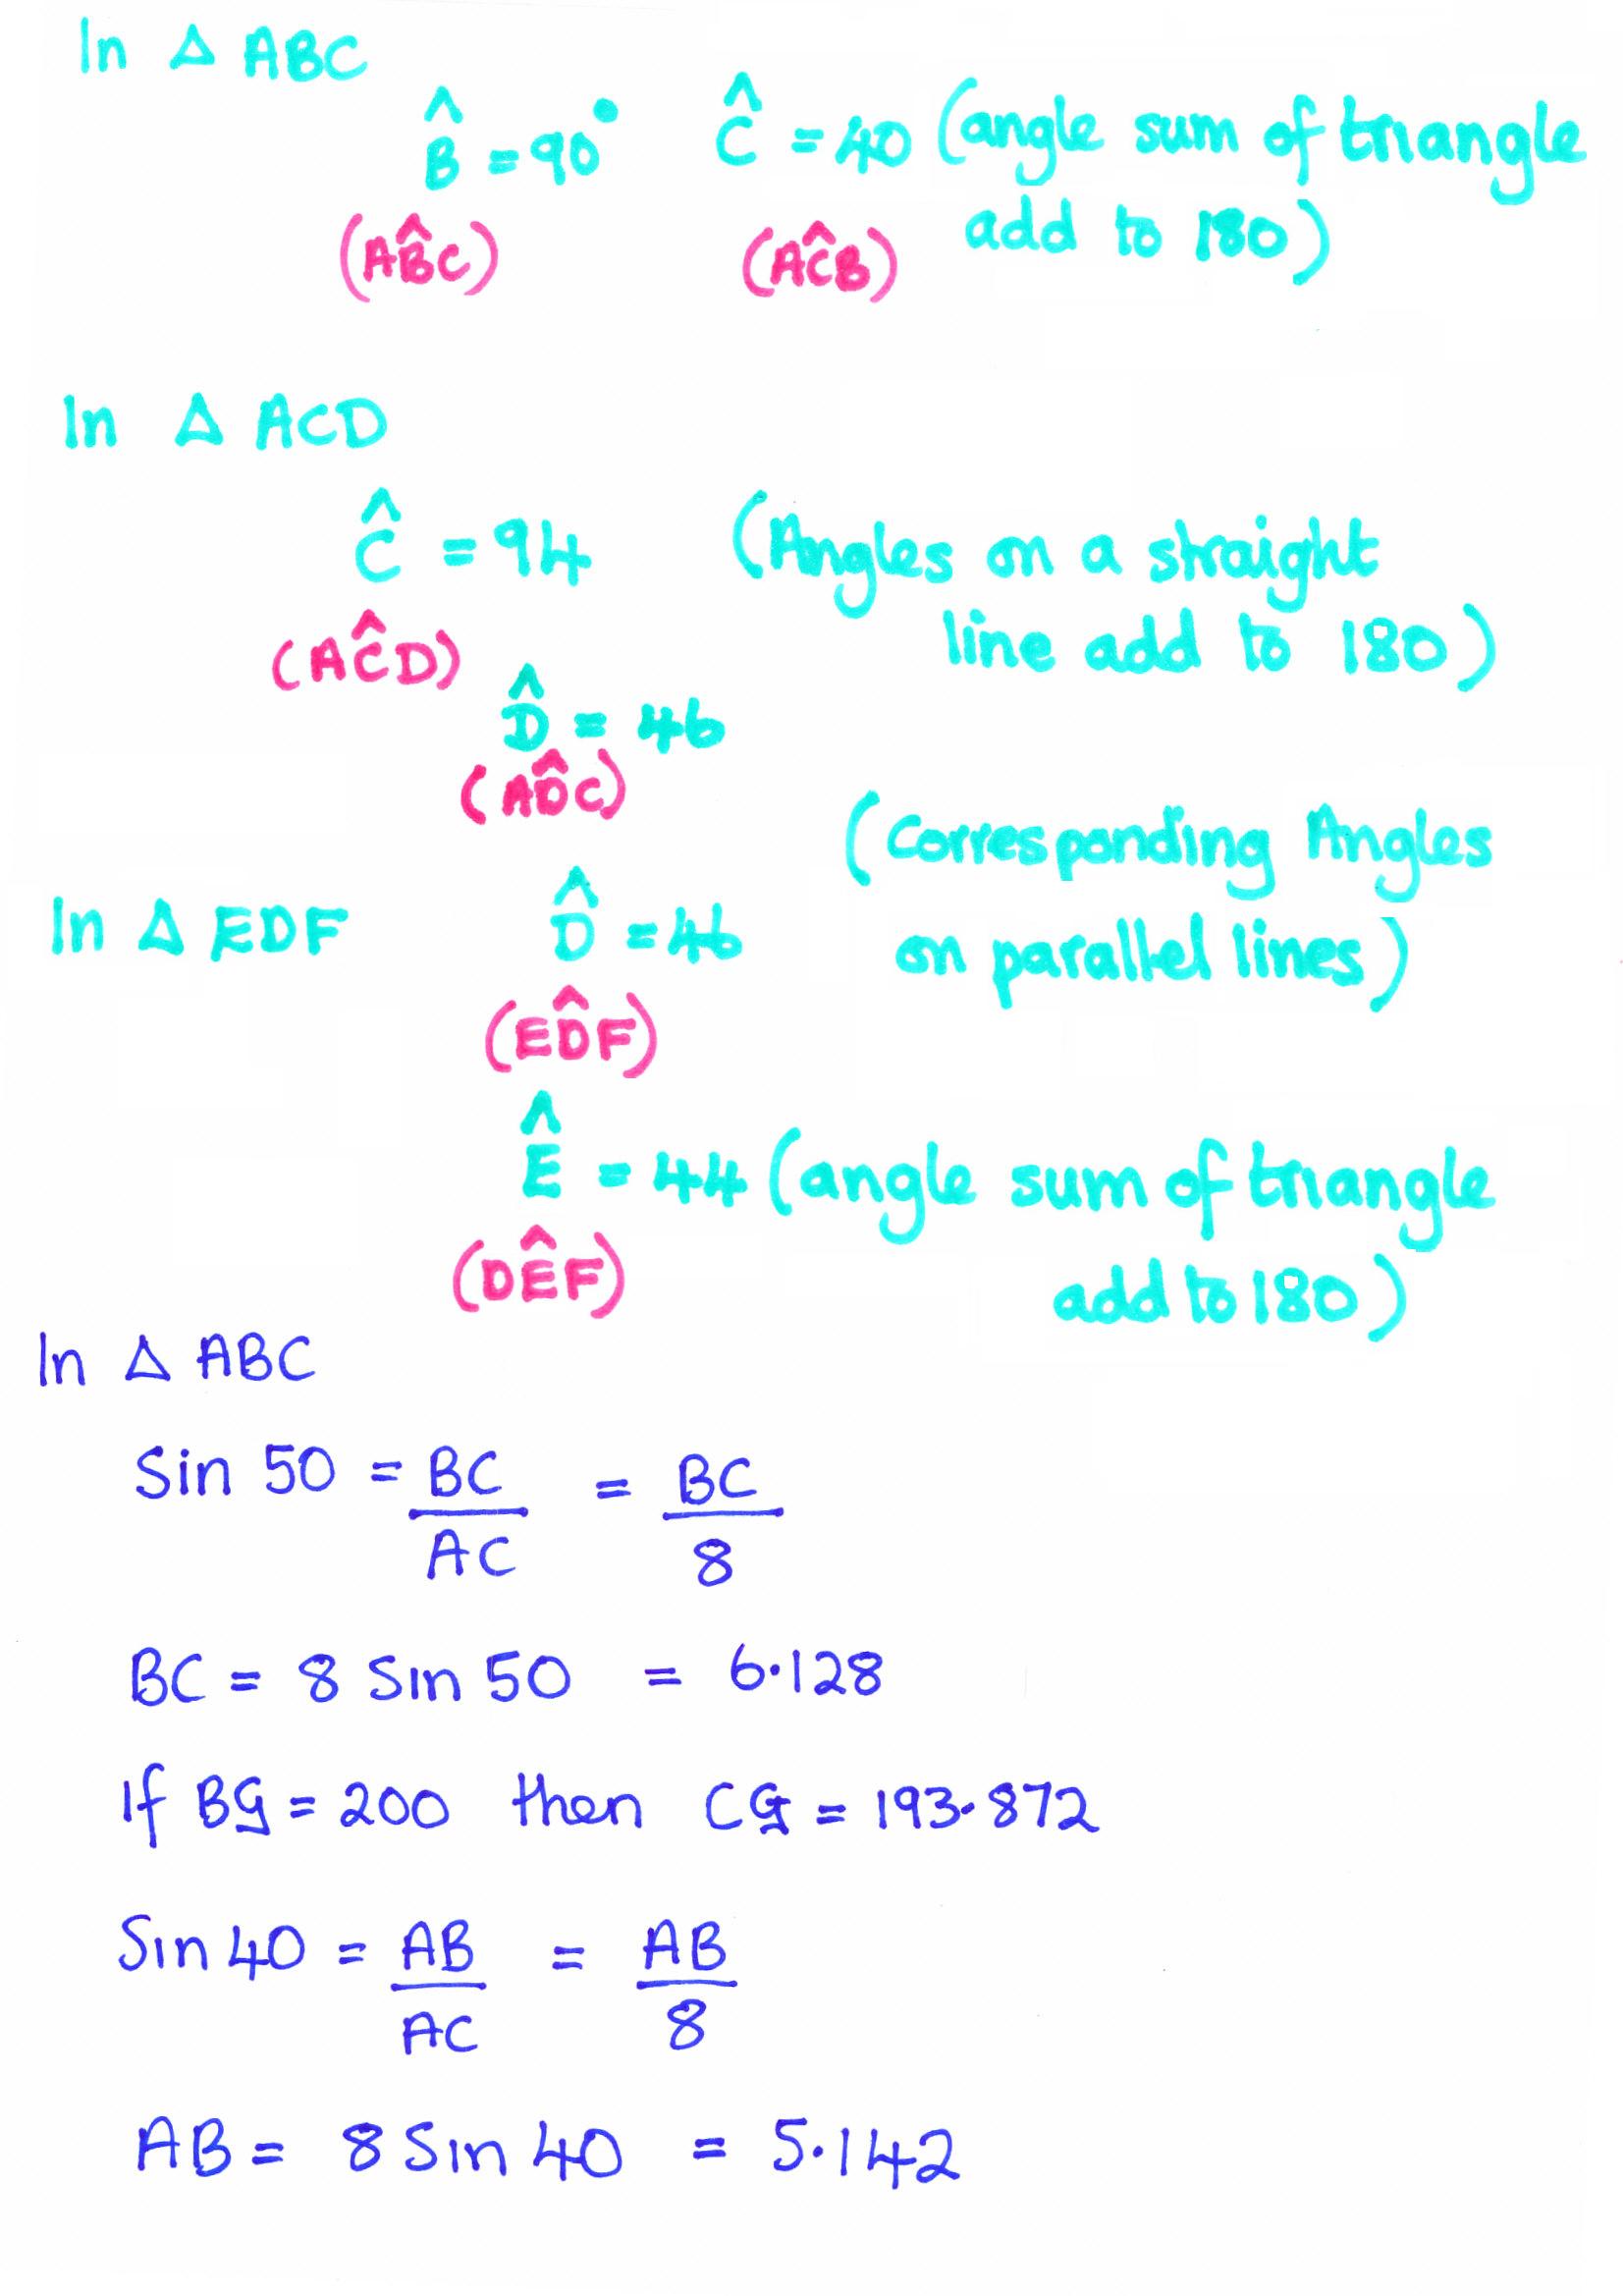 In Δ ABC
B̂ = 90° Ĉ = 40 (angle sum of triangle
(AB̂C) (AĈB) add to 180)
In Δ ACD
Ĉ = 94 (Angles on a straight
(AĈD) line add to 180)
D̂ = 46
(AD̂C)
(Corresponding Angles
In Δ EDF D̂ = 46 on parallel lines)
(ED̂F)
Ê = 44 (angle sum of triangle
(DÊF) add to 180)
In Δ ABC
Sin 50 = BC/AC = BC/8
BC = 8 Sin 50 = 6.128
If BG = 200 then CG = 193.872
Sin 40 = AB/AC = AB/8
AB = 8 Sin 40 = 5.142